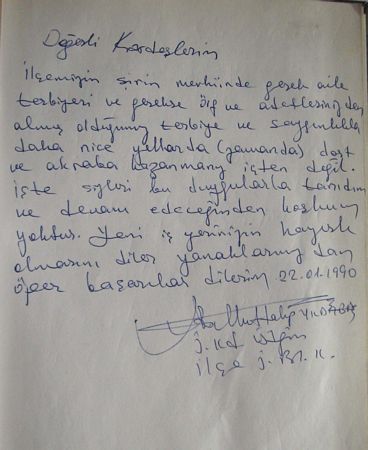 Değerli Kardeşlerim
İlçemizin şirin mevkiinde gerek aile
terbiyeri ve gerekse örf ve adetlerinizden
almış olduğunuz terbiye ve saygınlıkla
daha nice yıllarda (zamanda) dost
ve akraba kazanmanız işten değil.
İşte sizleri bu duygularla tanıdım
ve devam edeceğinden kuşkum
yoktur. Yeni iş yerinizin hayırlı
olmasını diler yanaklarınızdan
öper başarılar dilerim 22.01.1990
J. Kd
İlçe J. Bl. K.